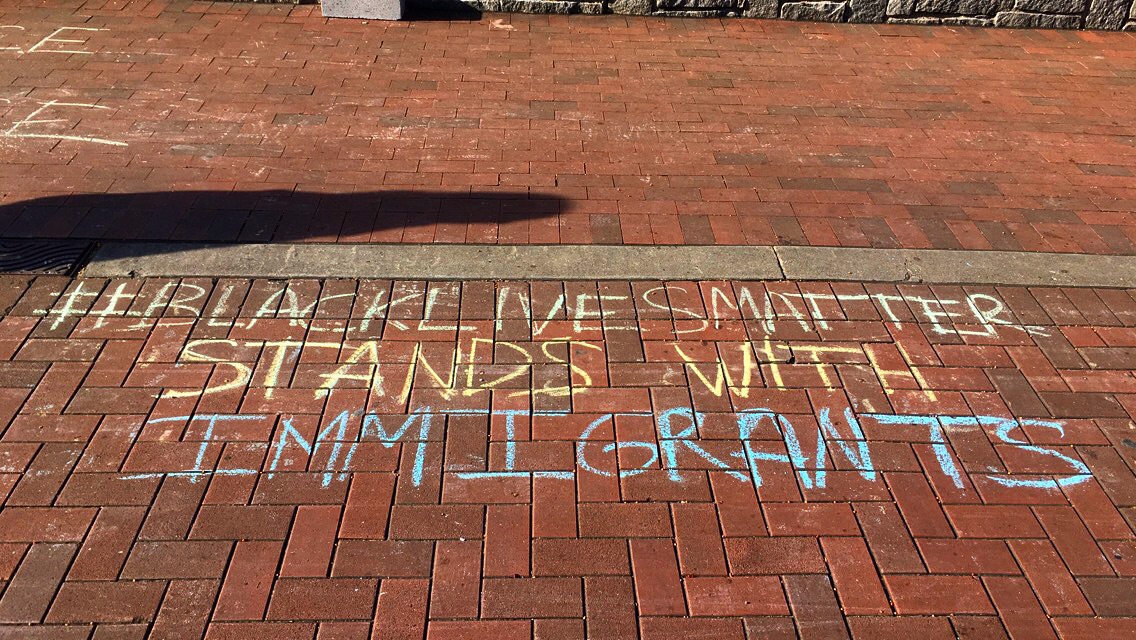 #BLACKLIVESMATTER
STANDS WITH
IMMIGRANTS